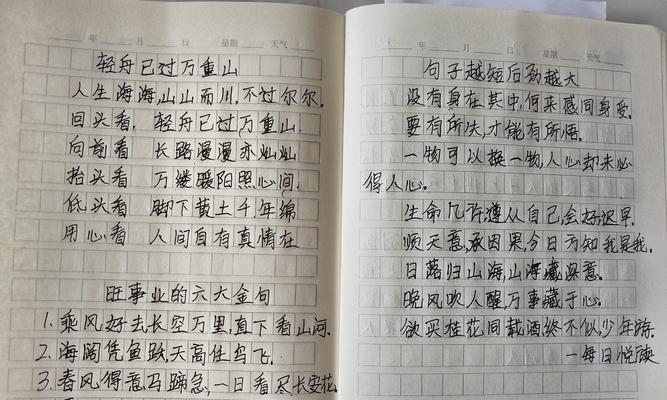 年 月 日 星期 天气
轻舟已过万重山
人生海海,山山而川,不过尔尔.
回头看. 轻舟已过万重山.
向前看 长路漫漫亦灿灿
抬头看 万缕暖阳照心间.
低头看 脚下黄土千年绵
用心看 人间自有真情在
旺事业的六大金句
1.乘风好去长空万里,直下看山河.
2.海阔凭鱼跃,天高任鸟飞.
3.春风得意马蹄急,一日看尽长安花.
年 月 日 星期 天气
句子越短后劲越大
没有身在其中,何来感同身受.
要有所失,才能有所悟.
一物可以换一物,人心却未必
得人心。
生命几许遵从自己,会好迟早.
顺天意,承因果,今日方知我是我.
日落归山海,山海藏深意.
晚风吹人醒,万事藏于心.
欲买桂花同载酒,终不似少年游.
—每日悦读